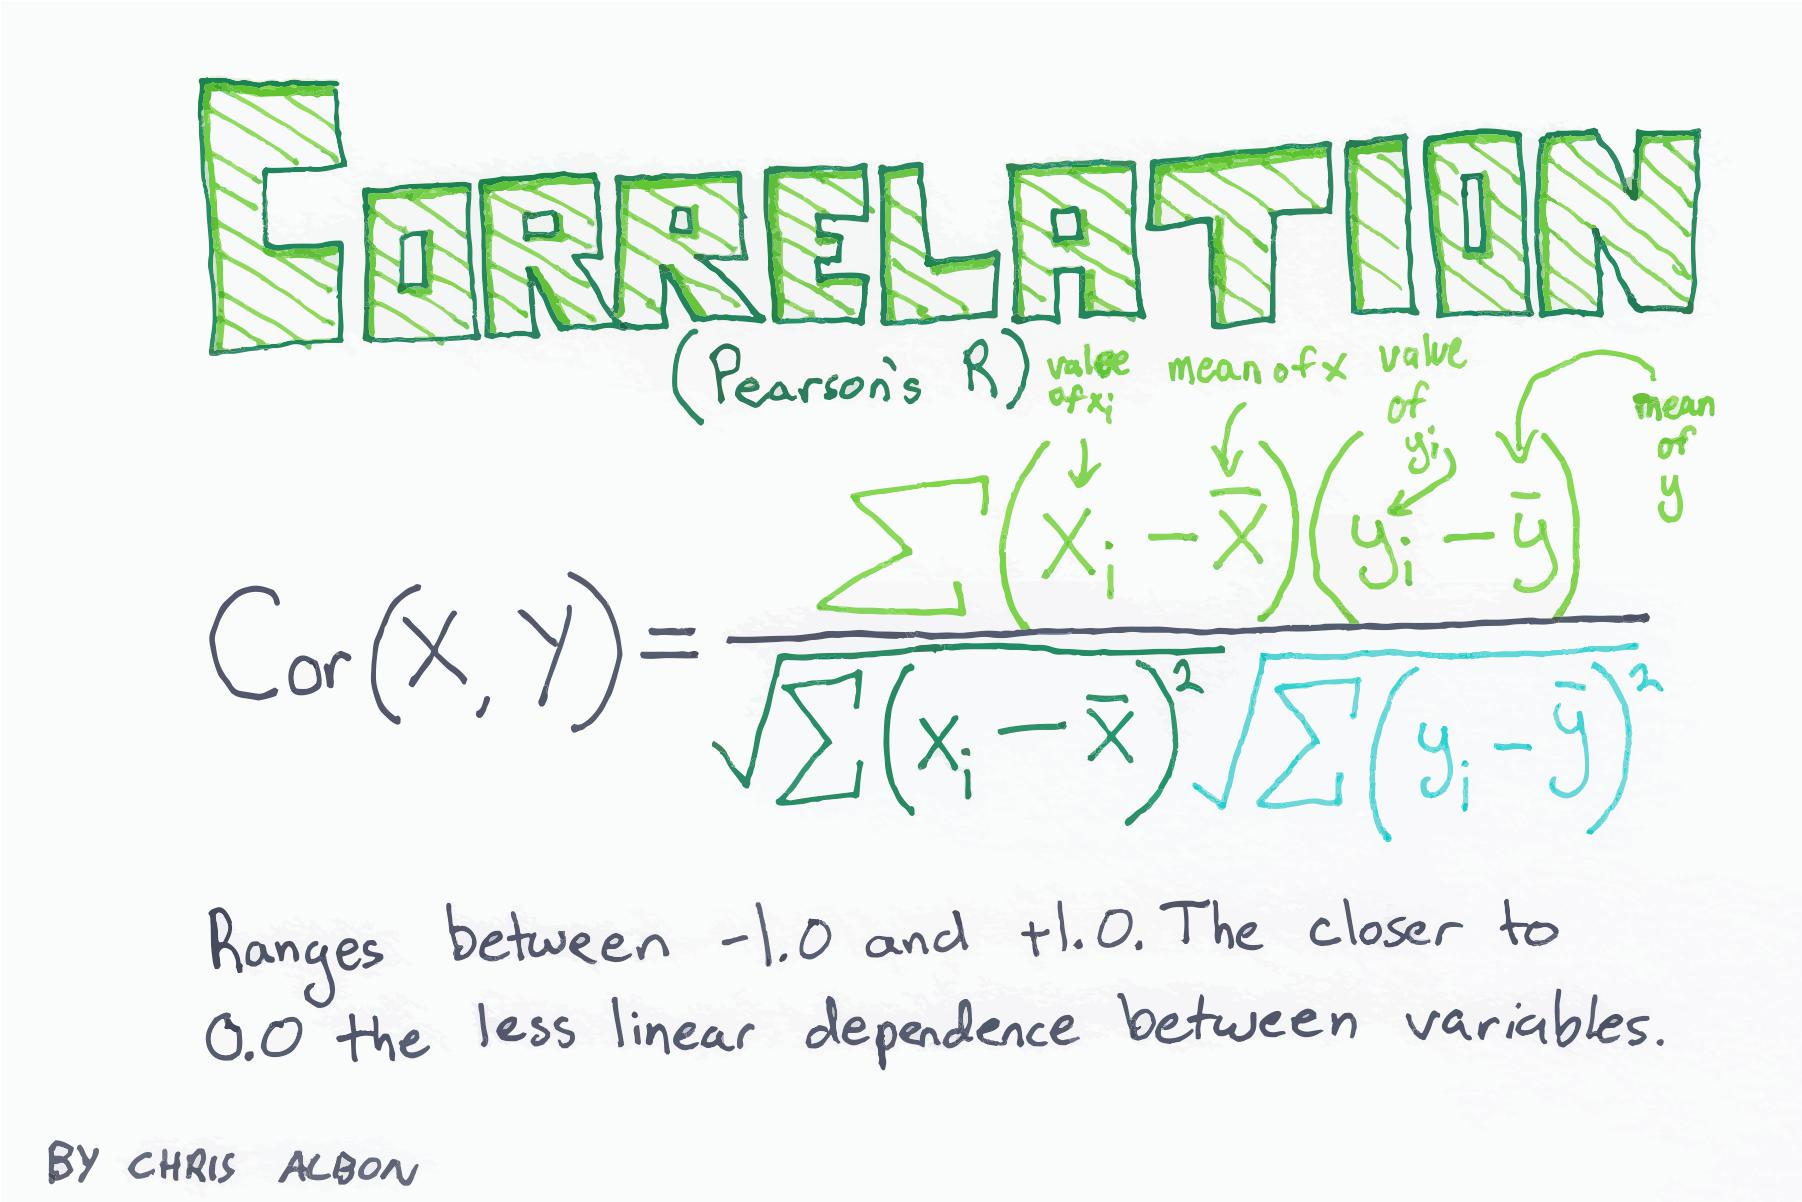 CORRELATION
(Pearson's R)
value of xᵢ
mean of x
value of yᵢ
mean of y
Cor(X, Y) = Σ(xᵢ − x̄)(yᵢ − ȳ) / √Σ(xᵢ − x̄)² √Σ(yᵢ − ȳ)²
Ranges between -1.0 and +1.0. The closer to
0.0 the less linear dependence between variables.
BY CHRIS ALBON